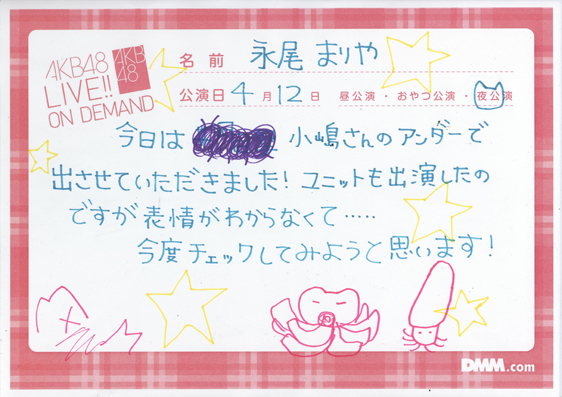 AKB48
LIVE!!
ON DEMAND
AKB
48
名前 永尾 まりや
公演日 4月12日 昼公演・おやつ公演・夜公演
今日は 小嶋さんのアンダーで
出させていただきました！ユニットも出演したの
ですが表情がわからなくて‥‥‥
今度チェックしてみようと思います！
DMM.com